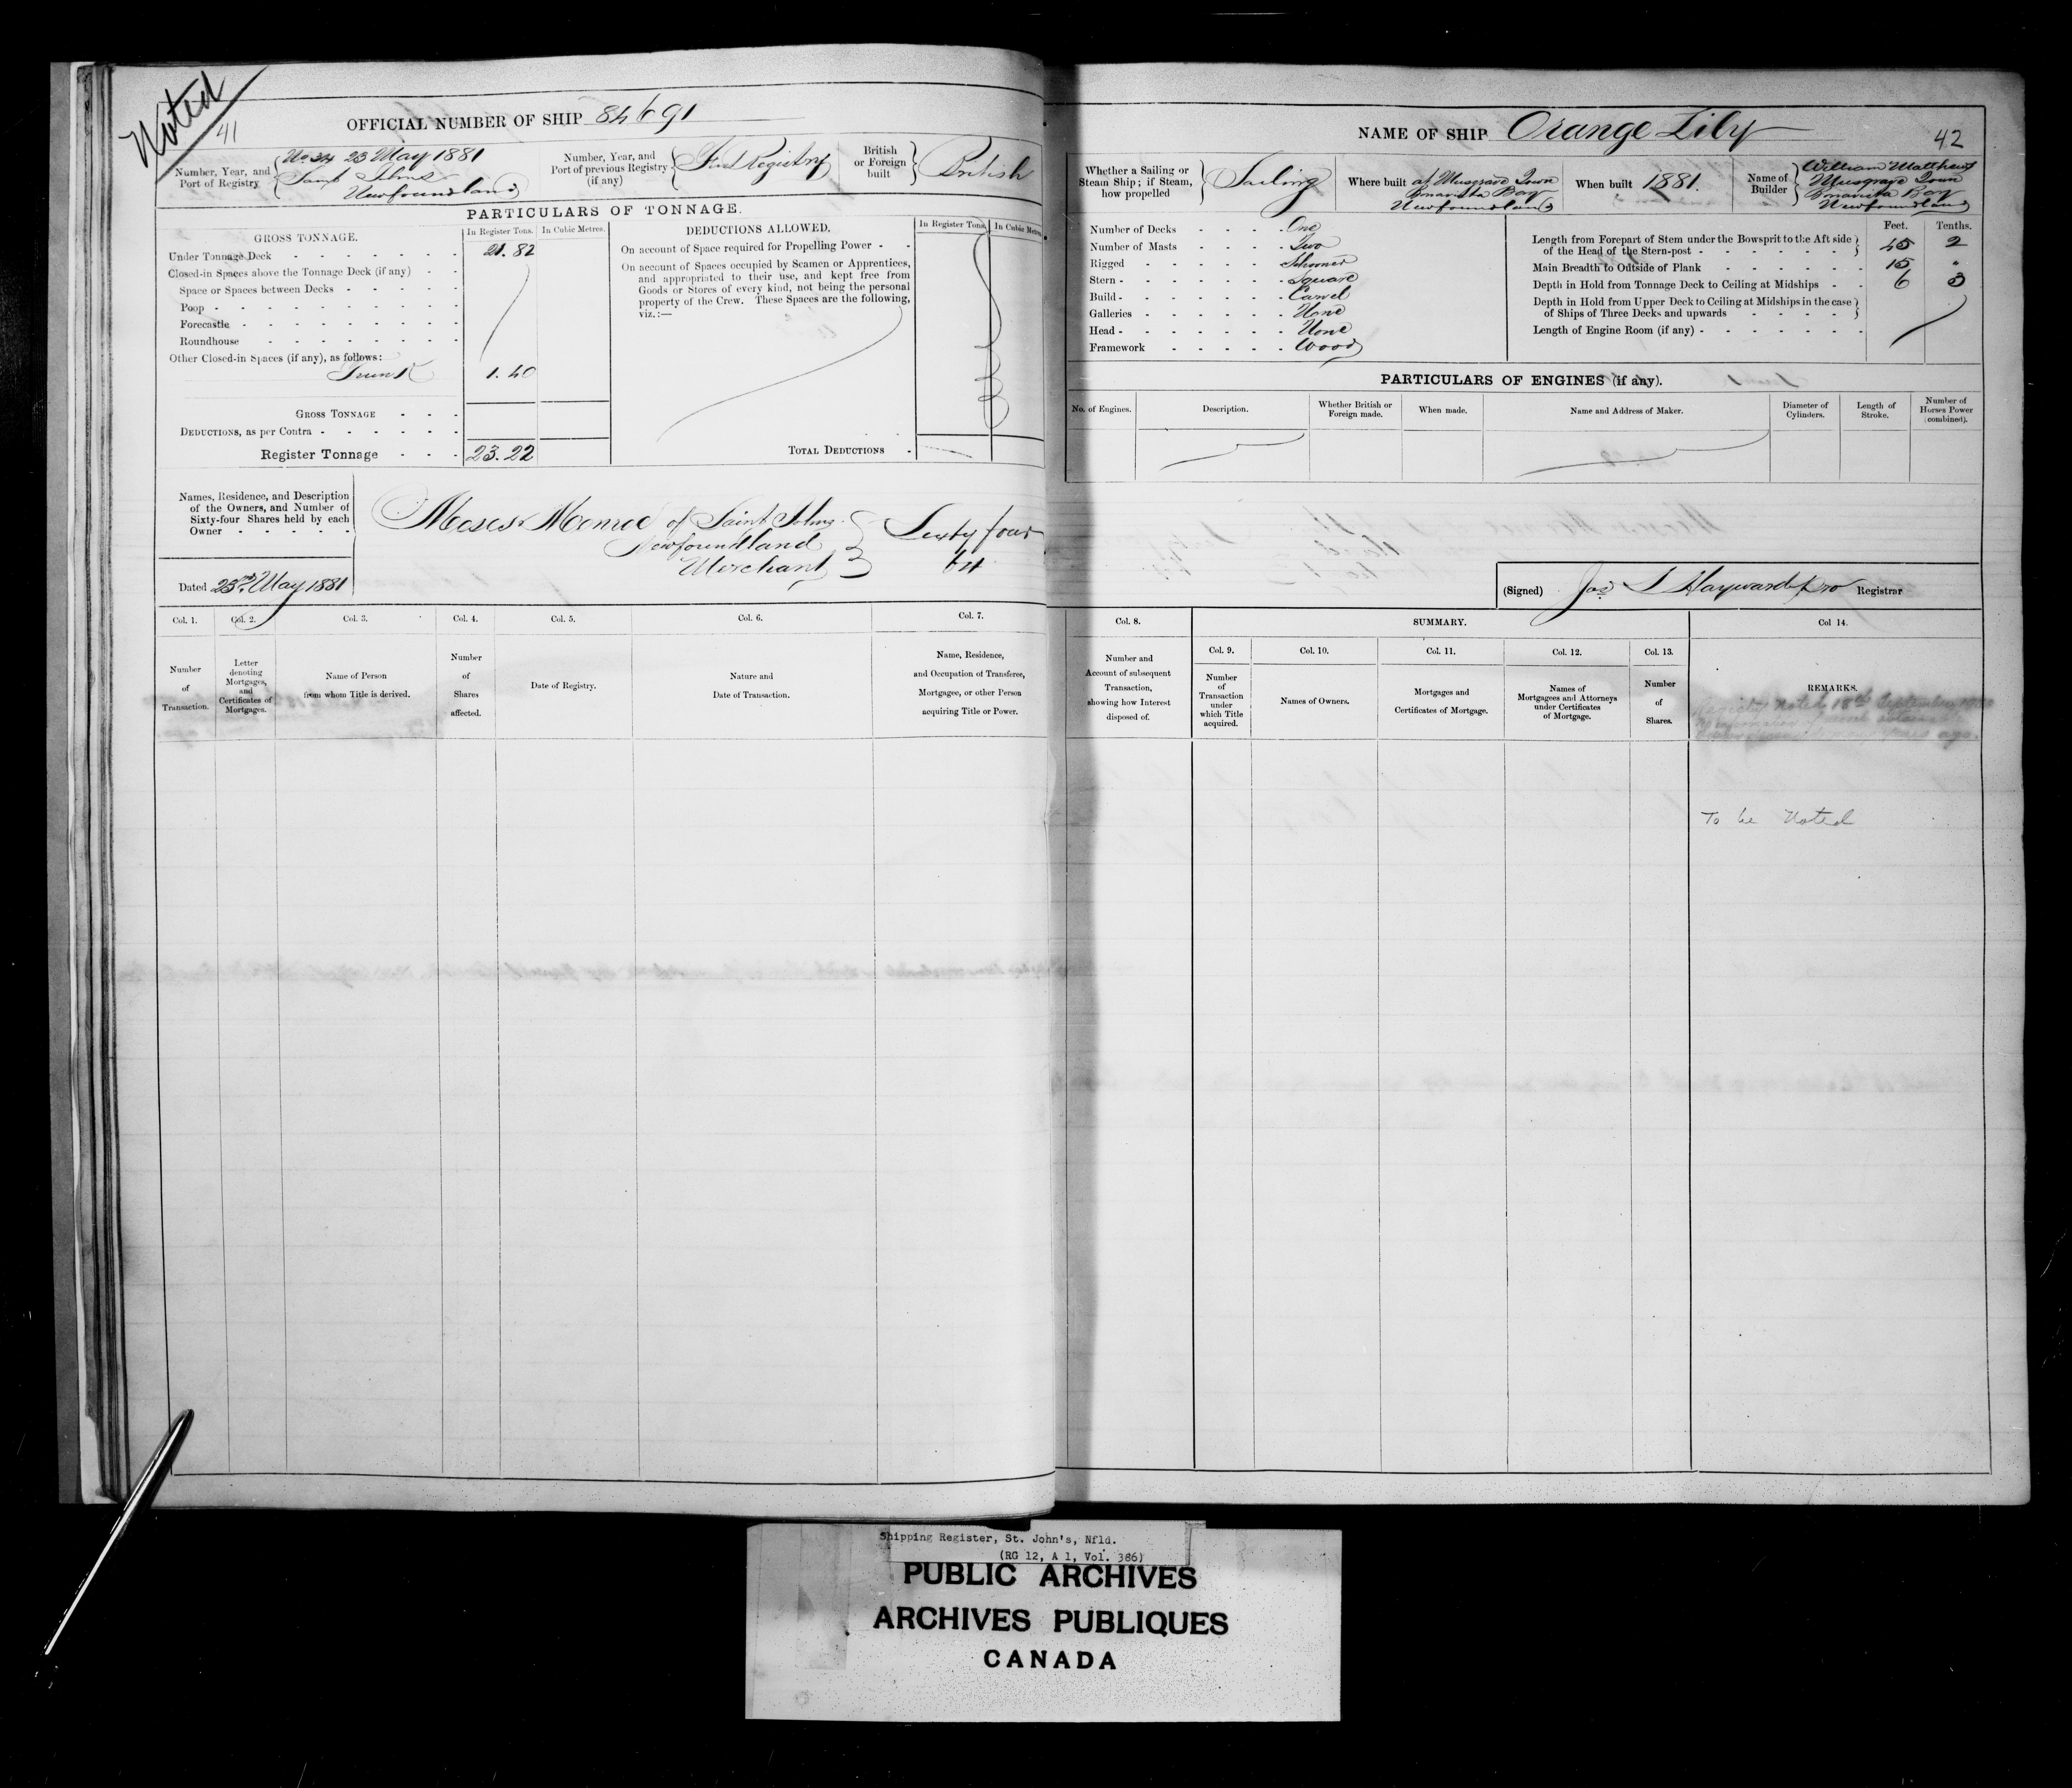 Noted
41
OFFICIAL NUMBER OF SHIP 84691
Number, Year, and Port of Registry
No 34 23 May 1881
Saint Johns
Newfoundland
Number, Year, and Port of previous Registry (if any)
First Registry
British or Foreign built
British
PARTICULARS OF TONNAGE.
GROSS TONNAGE.
In Register Tons.
In Cubic Metres.
Under Tonnage Deck 21.82
Closed-in Spaces above the Tonnage Deck (if any)
Space or Spaces between Decks
Poop
Forecastle
Roundhouse
Other Closed-in Spaces (if any), as follows:
Trunk 1.40
GROSS TONNAGE
DEDUCTIONS, as per Contra
Register Tonnage 23.22
DEDUCTIONS ALLOWED.
In Register Tons.
In Cubic Metres
On account of Space required for Propelling Power
On account of Spaces occupied by Seamen or Apprentices,
and appropriated to their use, and kept free from
Goods or Stores of every kind, not being the personal
property of the Crew. These Spaces are the following,
viz.:—
TOTAL DEDUCTIONS
Names, Residence, and Description
of the Owners, and Number of
Sixty-four Shares held by each
Owner
Moses Monroe of Saint Johns
Newfoundland
Merchant
Sixty four
64
Dated 23rd May 1881
Col. 1.
Number
of
Transaction.
Col. 2.
Letter
denoting
Mortgages,
and
Certificates of
Mortgages.
Col. 3.
Name of Person
from whom Title is derived.
Col. 4.
Number
of
Shares
affected.
Col. 5.
Date of Registry.
Col. 6.
Nature and
Date of Transaction.
Col. 7.
Name, Residence,
and Occupation of Transferee,
Mortgagee, or other Person
acquiring Title or Power.
NAME OF SHIP Orange Lily
42
Whether a Sailing or
Steam Ship; if Steam,
how propelled
Sailing
Where built
at Musgrave Town
Bonavista Bay
Newfoundland
When built 1881.
Name of
Builder
William Matthews
Musgrave Town
Bonavista Bay
Newfoundland
Number of Decks One
Number of Masts Two
Rigged Schooner
Stern Square
Build Carvel
Galleries None
Head None
Framework Wood
Feet. Tenths.
Length from Forepart of Stem under the Bowsprit to the Aft side
of the Head of the Stern-post 45 2
Main Breadth to Outside of Plank 15 "
Depth in Hold from Tonnage Deck to Ceiling at Midships 6 3
Depth in Hold from Upper Deck to Ceiling at Midships in the case
of Ships of Three Decks and upwards
Length of Engine Room (if any)
PARTICULARS OF ENGINES (if any).
No. of Engines.
Description.
Whether British or
Foreign made.
When made.
Name and Address of Maker.
Diameter of
Cylinders.
Length of
Stroke.
Number of
Horses Power
(combined).
(Signed) Jas S Hayward Pro Registrar
Col. 8.
Number and
Account of subsequent
Transaction,
showing how Interest
disposed of.
SUMMARY.
Col. 9.
Number
of
Transaction
under
which Title
acquired.
Col. 10.
Names of Owners.
Col. 11.
Mortgages and
Certificates of Mortgage.
Col. 12.
Names of
Mortgagees and Attorneys
under Certificates
of Mortgage.
Col. 13.
Number
of
Shares.
Col 14.
REMARKS.
To be Noted
Shipping Register, St. John's, Nfld.
(RG 12, A 1, Vol. 386)
PUBLIC ARCHIVES
ARCHIVES PUBLIQUES
CANADA